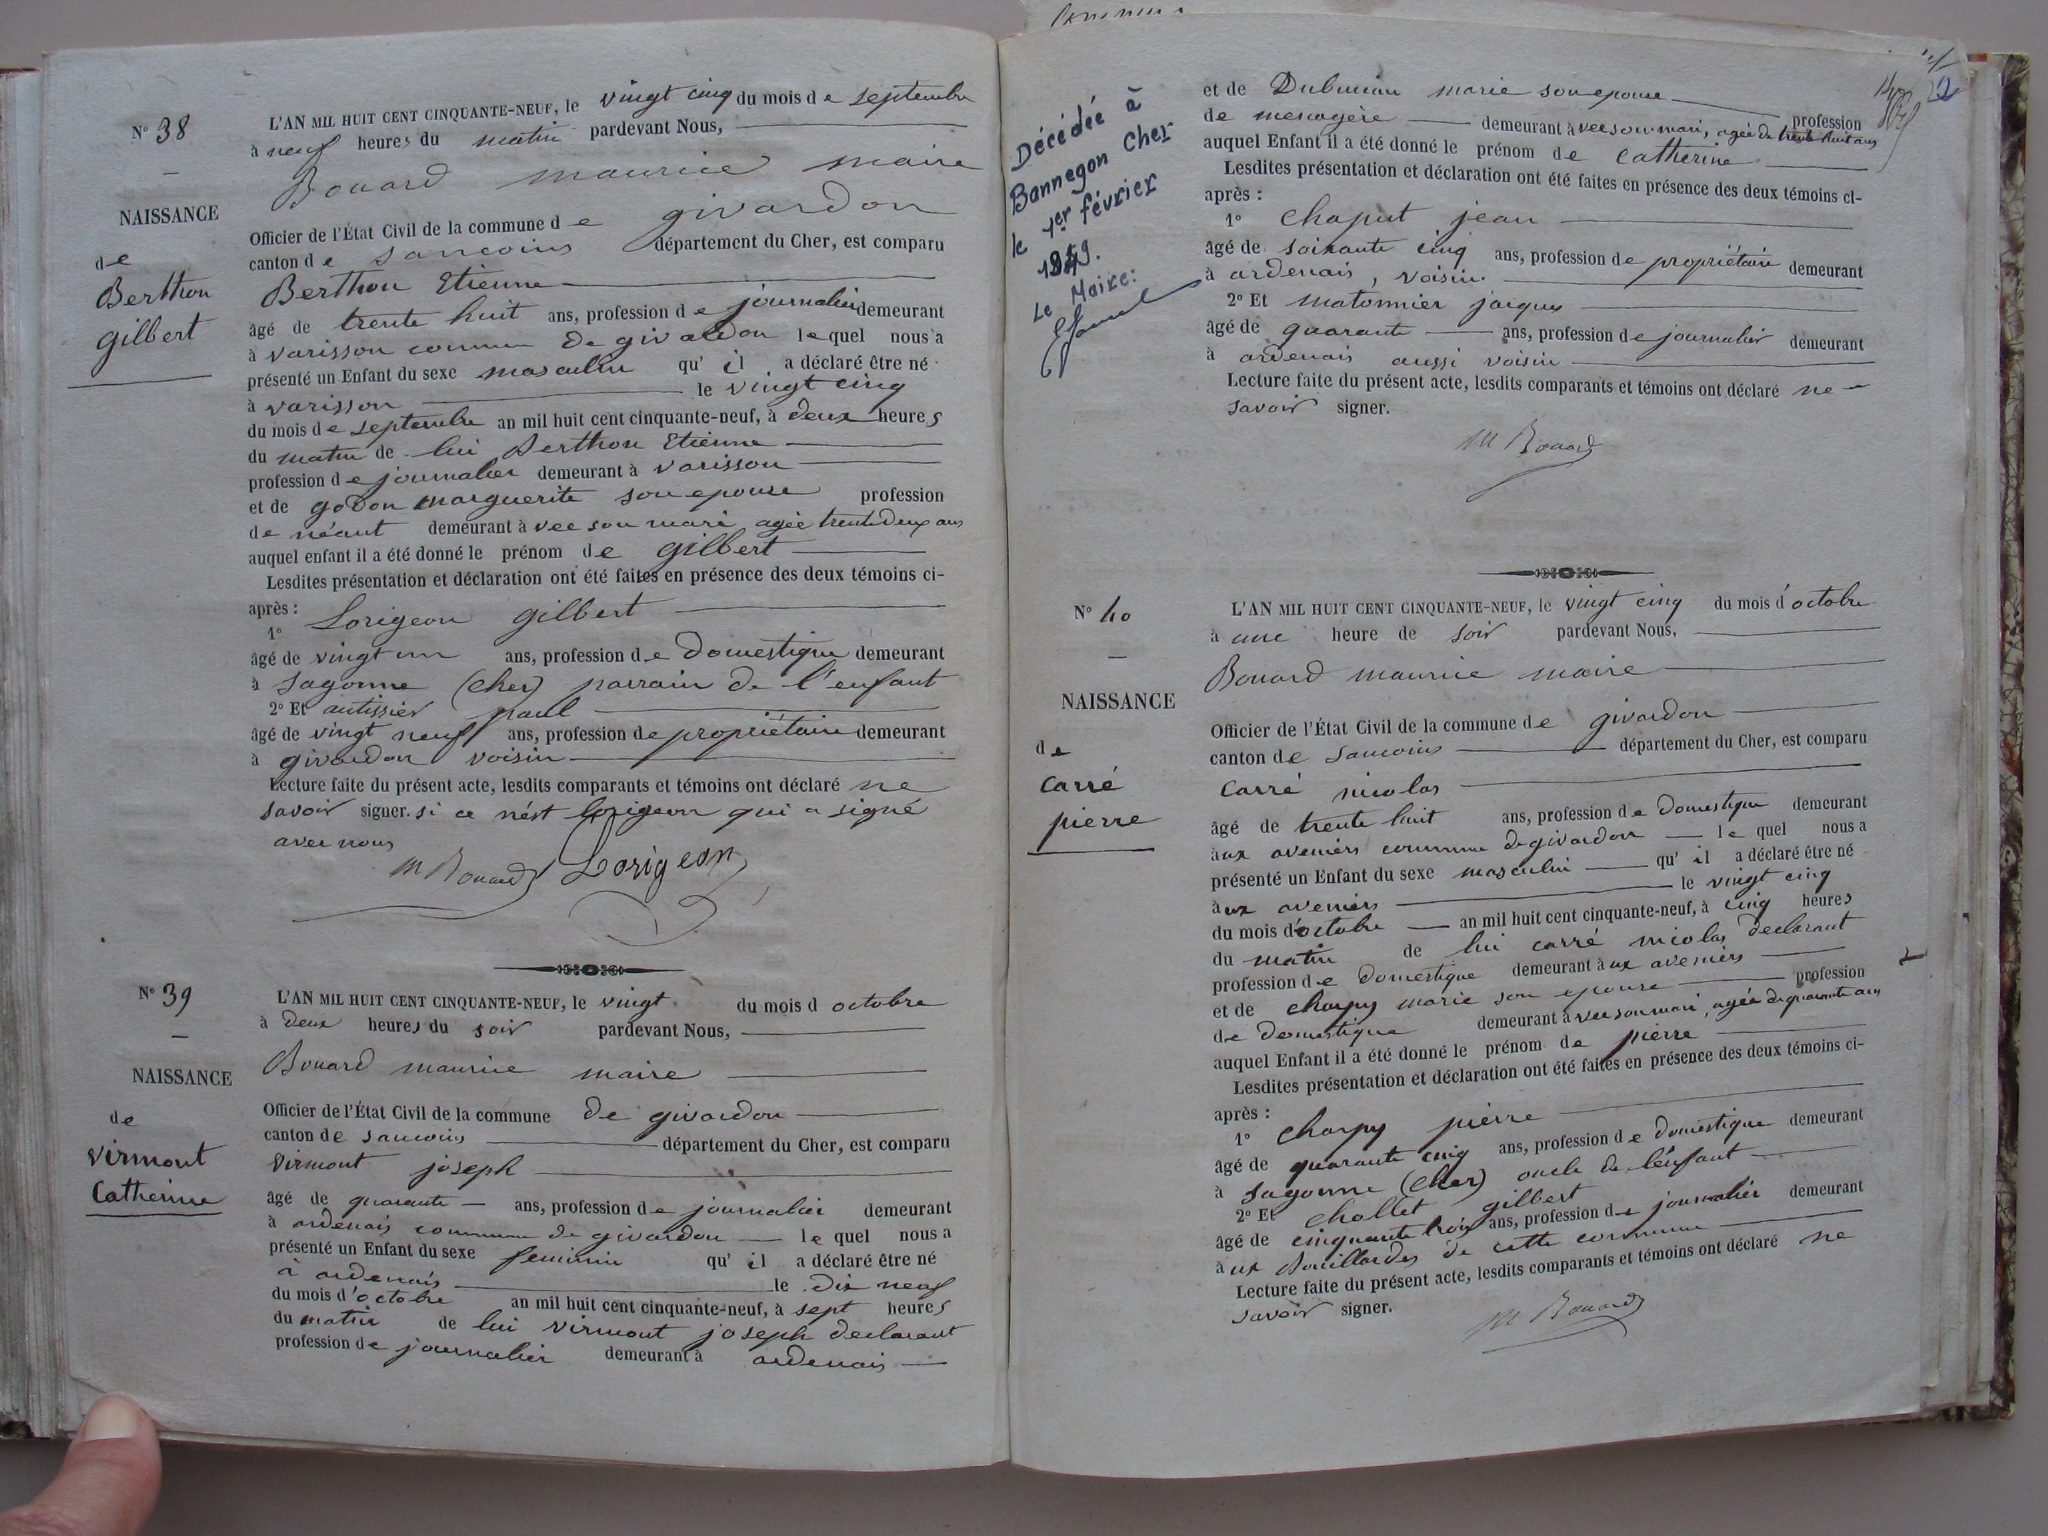 N° 38
NAISSANCE
de
Berthon
gilbert
L'AN MIL HUIT CENT CINQUANTE-NEUF, le vingt cinq du mois de septembre
à neuf heures du matin pardevant Nous,
Bouard maurice maire
Officier de l'État Civil de la commune de givardon
canton de sancoins département du Cher, est comparu
Berthon Etienne
âgé de trente huit ans, profession de journalier demeurant
à varisson commune de givardon lequel nous a
présenté un Enfant du sexe masculin qu'il a déclaré être né
à varisson le vingt cinq
du mois de septembre an mil huit cent cinquante-neuf, à deux heures
du matin de lui Berthon Etienne
profession de journalier demeurant à varisson
et de godon marguerite son epouse profession
de néant demeurant avec son mari agée trente deux ans
auquel enfant il a été donné le prénom de gilbert
Lesdites présentation et déclaration ont été faites en présence des deux témoins ci-
après :
1° Lorigeon gilbert
âgé de vingt un ans, profession de domestique demeurant
à sagonne (cher) parrain de l'enfant
2° Et autissier paul
âgé de vingt neuf ans, profession de propriétaire demeurant
à givardon voisin
Lecture faite du présent acte, lesdits comparants et témoins ont déclaré ne
savoir signer. si ce n'est lorigeon qui a signé
avec nous
M Bouard Lorigeon
N° 39
NAISSANCE
de
virmont
Catherine
L'AN MIL HUIT CENT CINQUANTE-NEUF, le vingt du mois d octobre
à deux heures du soir pardevant Nous,
Bouard maurice maire
Officier de l'État Civil de la commune de givardon
canton de sancoins département du Cher, est comparu
virmont joseph
âgé de quarante ans, profession de journalier demeurant
à ardenais commune de givardon lequel nous a
présenté un Enfant du sexe feminin qu'il a déclaré être né
à ardenais le dix neuf
du mois d'octobre an mil huit cent cinquante-neuf, à sept heures
du matin de lui virmont joseph declarant
profession de journalier demeurant à ardenais
Décédée à
Bannegon Cher
le 1er février
Le Maire:
et de marie son epouse profession
de menagère demeurant avec son mari, agée de trente huit ans
auquel Enfant il a été donné le prénom de catherine
Lesdites présentation et déclaration ont été faites en présence des deux témoins ci-
après :
1° chaput jean
âgé de soixante cinq ans, profession de propriétaire demeurant
à ardenais, voisin
2° Et matonnier jacques
âgé de quarante ans, profession de journalier demeurant
à ardenais aussi voisin
Lecture faite du présent acte, lesdits comparants et témoins ont déclaré ne
savoir signer.
M Bouard
N° 40
NAISSANCE
de
carré
pierre
L'AN MIL HUIT CENT CINQUANTE-NEUF, le vingt cinq du mois d'octobre
à une heure de soir pardevant Nous,
Bouard maurice maire
Officier de l'État Civil de la commune de givardon
canton de sancoins département du Cher, est comparu
carré nicolas
âgé de trente huit ans, profession de domestique demeurant
aux aveniers commune de givardon lequel nous a
présenté un Enfant du sexe masculin qu'il a déclaré être né
aux aveniers le vingt cinq
du mois d'octobre an mil huit cent cinquante-neuf, à cinq heures
du matin de lui carré nicolas declarant
profession de domestique demeurant aux aveniers
et de charpy marie son epouse profession
de domestique demeurant avec son mari, agée de quarante ans
auquel Enfant il a été donné le prénom de pierre
Lesdites présentation et déclaration ont été faites en présence des deux témoins ci-
après :
1° charpy pierre
âgé de quarante cinq ans, profession de domestique demeurant
à sagonne (cher) oncle de l'enfant
2° Et chollet gilbert
âgé de cinquante trois ans, profession de journalier demeurant
aux de cette commune
Lecture faite du présent acte, lesdits comparants et témoins ont déclaré ne
savoir signer.
M Bouard